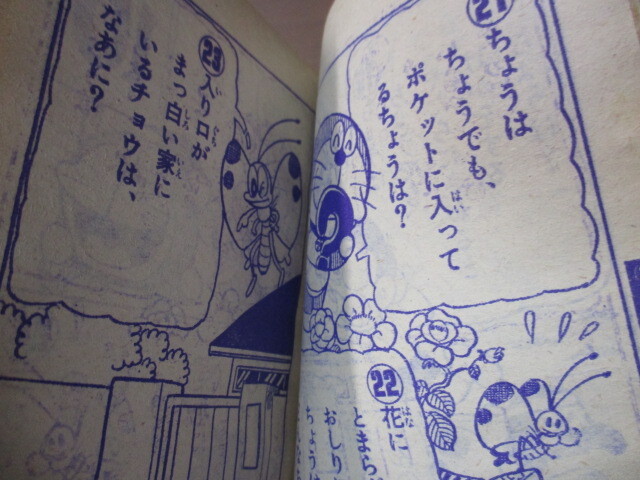 21
ちょうは
ちょうでも、
ポケットに入って
るちょうは?
22
花に
とまら
おしり
ちょうは
23
入り口が
まっ白い家に
いるチョウは、
なあに?